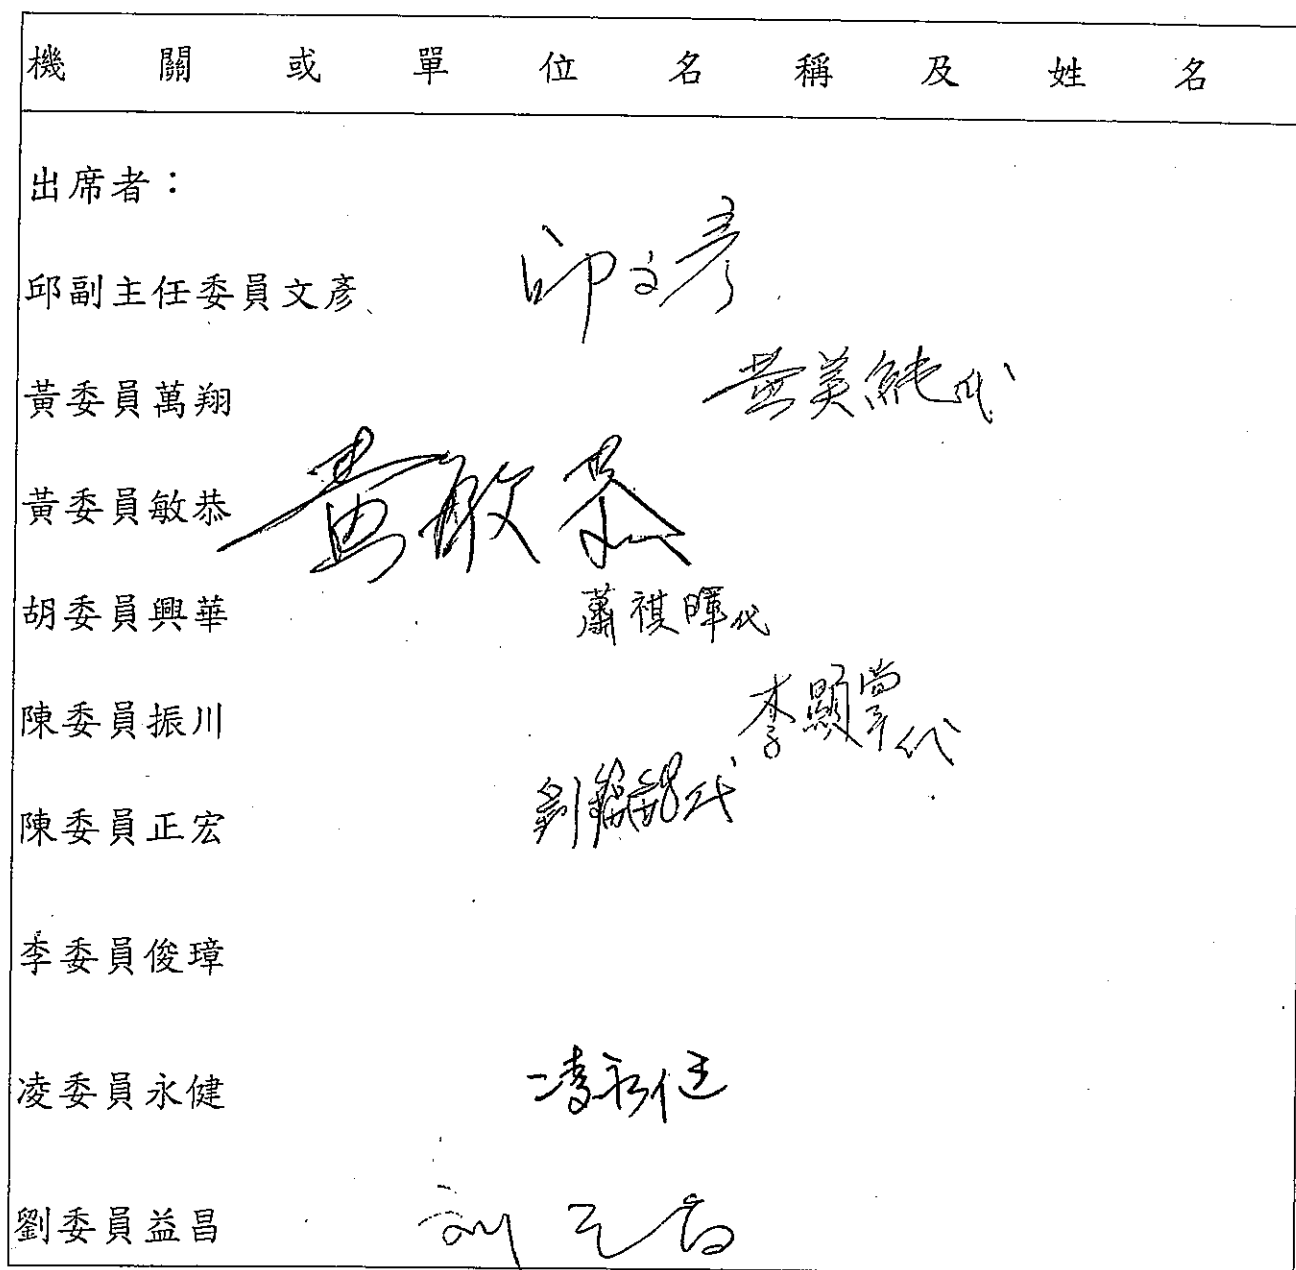 機關或單位名稱及姓名
出席者：
邱副主任委員文彥、 邱文彥
黃委員萬翔 黃美純代
黃委員敏恭 黃敏恭
胡委員興華 蕭祺暉代
陳委員振川 李顯掌代
陳委員正宏 劉 代
李委員俊璋
凌委員永健 凌永健
劉委員益昌 劉益昌